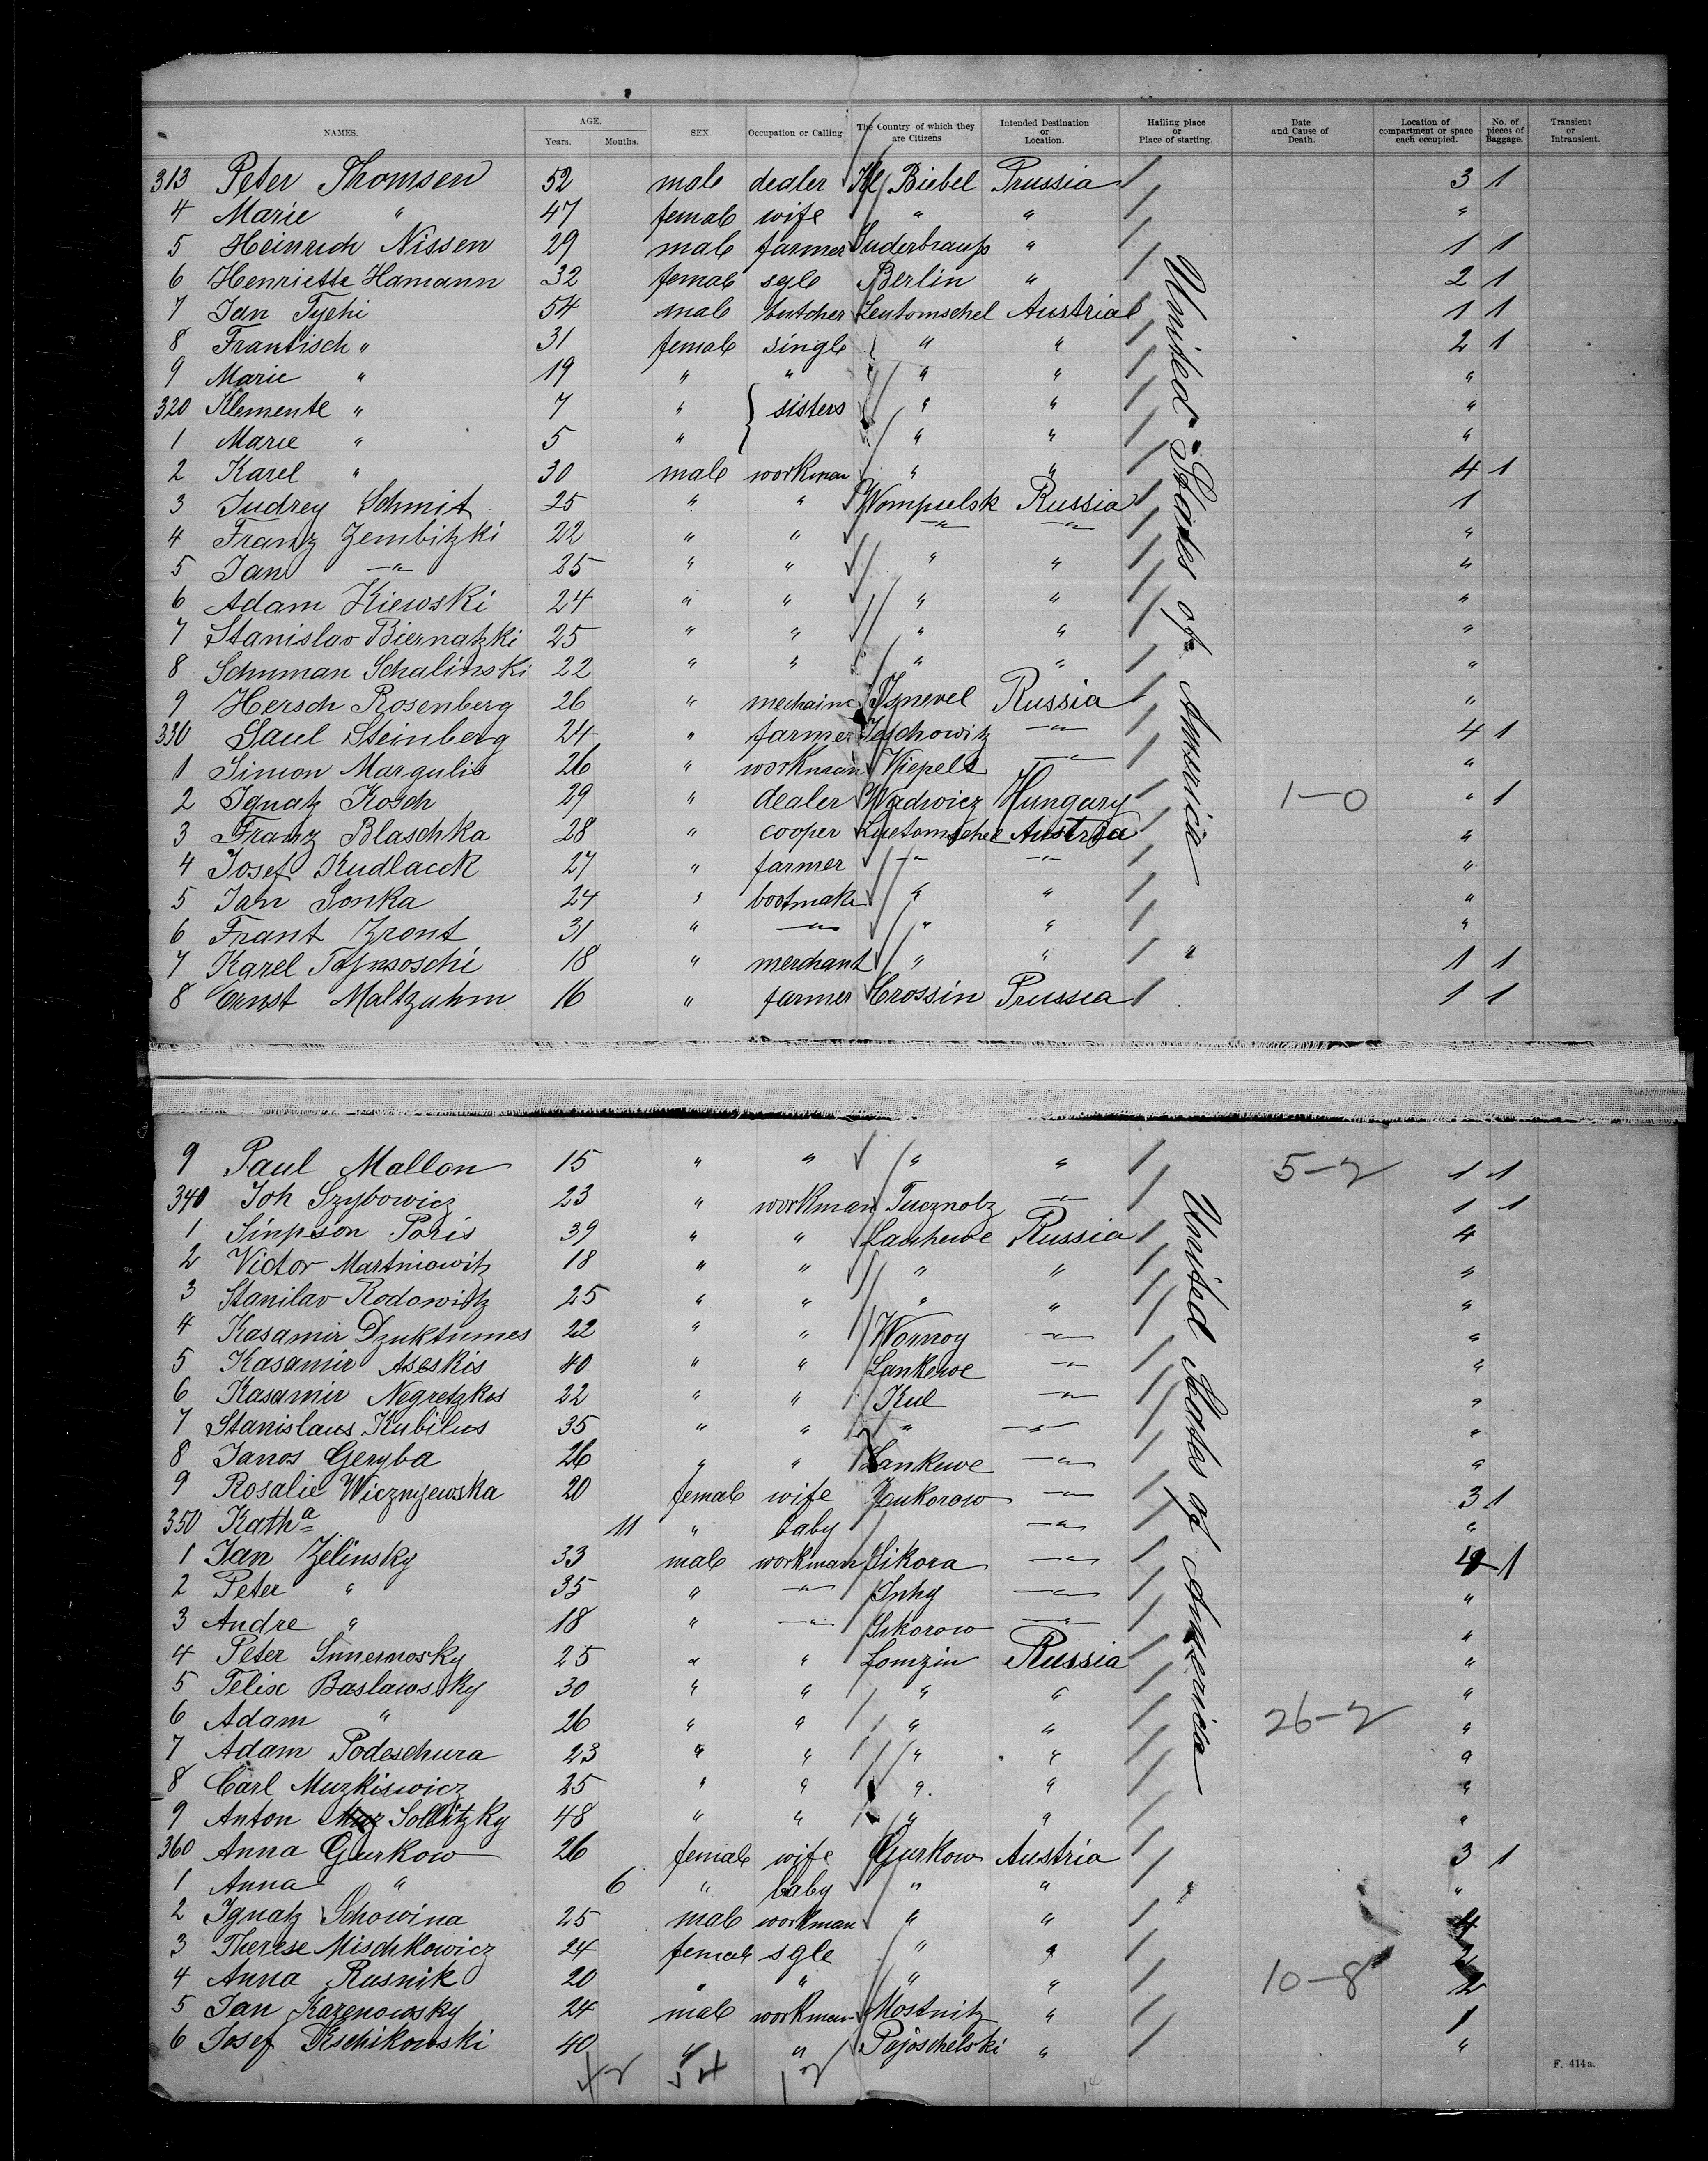 NAMES. AGE. Years. Months. SEX. Occupation or Calling The Country of which they are Citizens Intended Destination or Location. Hailing place or Place of starting. Date and Cause of Death. Location of compartment or space each occupied. No. of pieces of Baggage. Transient or Intransient.
313 Peter Thomsen 52 male dealer Kl. Biebel Prussia 3 1
4 Marie " 47 female wife " " "
5 Heinrich Nissen 29 male farmer Suderbraup " 1 1
6 Henriette Hamann 32 female sgle Berlin " 2 1
7 Jan Tychi 54 male butcher Leutomschel Austria 1 1
8 Frantisch " 31 female single " " 2 1
9 Marie " 19 " " " " "
320 Klemente " 7 " sisters " " "
1 Marie " 5 " " " "
2 Karel " 30 male workman " " 4 1
3 Judrey Schmit 25 " " Wompielsk Russia 1
4 Franz Zembitzki 22 " " " " "
5 Jan " 25 " " " " "
6 Adam Kiewski 24 " " " " "
7 Stanislav Biernatzki 25 " " " " "
8 Schuman Schalinski 22 " " " " "
9 Hersch Rosenberg 26 " Russia "
330 Saul Steinberg 24 " farmer " 4 1
1 Simon Margulis 26 " workman Kiepele " "
2 Ignatz Kosch 29 " dealer Wadwicz Hungary 1-0 " 1
3 Franz Blaschka 28 " cooper Austria "
4 Josef Kudlacek 27 " farmer " " "
5 Jan Sonka 24 " bootmake " " "
6 Frant Zront 31 " " " " "
7 Karel 18 " merchant " " " 1 1
8 Ernst Maltzahm 16 " farmer Crossin Prussia 1 1
United States of America
9 Paul Mallon 15 " " " " 5-2 1 1
340 Joh Szybowicz 23 " workman Tucznobz " 1 1
1 Simpson Paris 39 " " Lauhewe Russia 4
2 Victor Martniowitz 18 " " " " "
3 Stanilav Rodowitz 25 " " " " "
4 Kasamir Dzuktumes 22 " " Wornoy " "
5 Kasamir Aseskis 40 " " Lankewe " "
6 Kasamir Negretzkos 22 " " Kul " "
7 Stanislaus Kubilus 35 " " " " "
8 Janos Geryba 26 " " Lankewe " "
9 Rosalie Wicznyewska 20 female wife Zaukorow " 3 1
350 Katha 11 " baby " "
1 Jan Zelinsky 33 male workman Sikora " 4 1
2 Peter " 35 " " " "
3 Andre " 18 " " Sikorow " "
4 Peter 25 " " Lomzin Russia "
5 Felix Baslawsky 30 " " " " "
6 Adam " 26 " " " " 26-2 "
7 Adam Podeschura 23 " " " " "
8 Carl Muzkiswicz 25 " " " " "
9 Anton Sollitzky 48 " " " " "
360 Anna Gurkow 26 female wife Gurkow Austria 3 1
1 Anna " 6 " baby " " " "
2 Ignatz Schowina 25 male workman " " 4
3 Therese Mischkowicz 24 female sgle " " 2
4 Anna Rusnik 20 " " " " 10-8 2
5 Jan Kazenowsky 24 male workman Mostnitz " 1
6 Josef 40 " " Pajoschelski " "
United States of America
F. 414a.